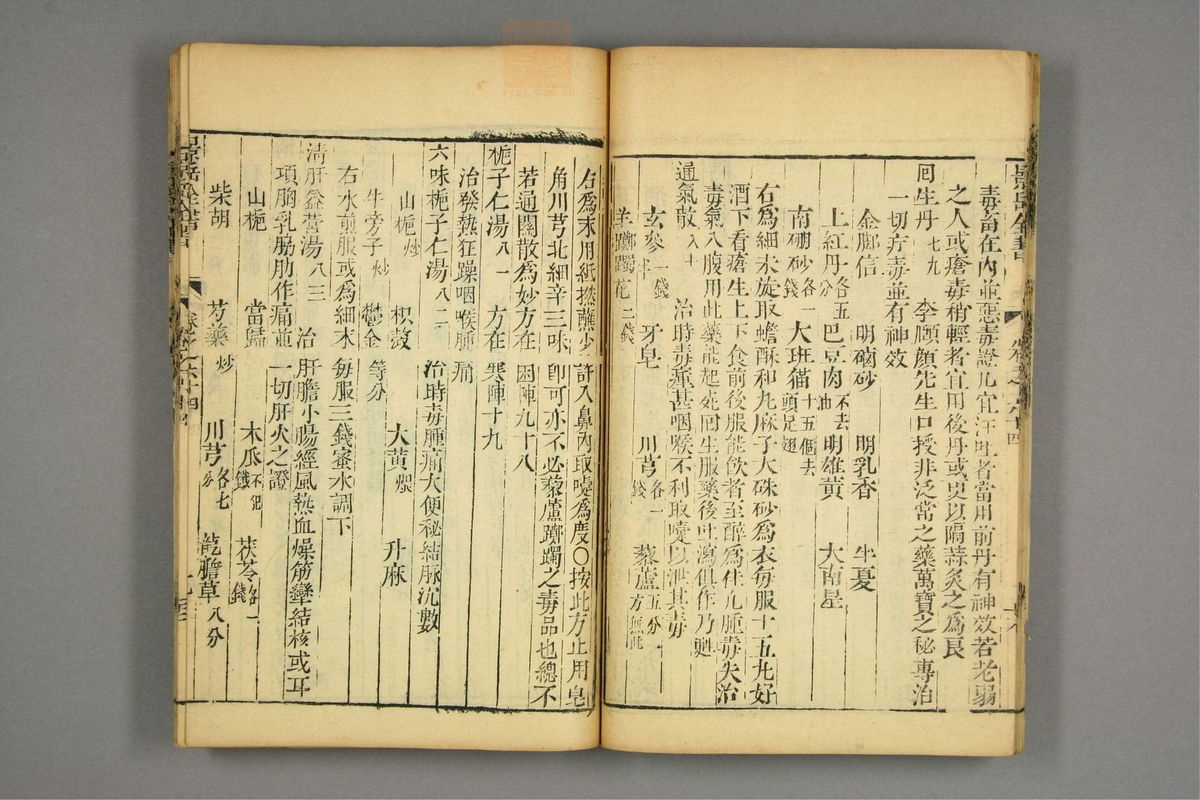 毒畜在内並惡毒證凡宜汗吐者當用前丹有神效若老弱
之人或瘡毒稍輕者宜用後丹或更以隔蒜灸之為良
囘生丹 七九 李愿顔先生口授非泛常之藥萬寶之秘專治
一切疔毒並有神效
金腳信 明硇砂 明乳香 半夏
上紅丹 各五分 巴豆肉 不去油 明雄黃 大南星
南硼砂 各一錢 大班猫 十五個去頭足翅
右為細末旋取蟾酥和丸麻子大硃砂為衣每服十五丸好
酒下看瘡生上下食前後服能飲者至醉為佳凡腫毒失治
毒氣入腹用此藥能起死回生服藥後吐瀉俱作乃甦
通氣散 八十 治時毒瘇甚咽喉不利取嚏以泄其毒
玄參 一錢半 牙皂 川芎 各一錢 藜蘆 五分一方無此
羊躑躅花 二錢
右為末用紙撚蘸少許入鼻内取嚏為度〇按此方止用皂
角川芎北細辛三味卽可亦不必藜蘆躑躅之毒品也總不
若通關散為妙方在因陣九十八
梔子仁湯 八一 方在寒陣十九
治發熱狂躁咽喉腫痛
六味梔子仁湯 八二 治時毒腫痛大便秘結脈沉數
山梔 炒 枳殼 大黃 煨 升麻
牛旁子 炒 鬱金 等分
右水煎服或為細末每服三錢蜜水調下
淸肝益營湯 八三 治肝膽小腸經風熱血燥筋攣結核或耳
項胸乳脇肋作痛並一切肝火之證
山梔 當歸 木瓜 不犯 錢 茯苓 各一錢
柴胡 芍藥 炒 川芎 各七分 龍膽草 八分